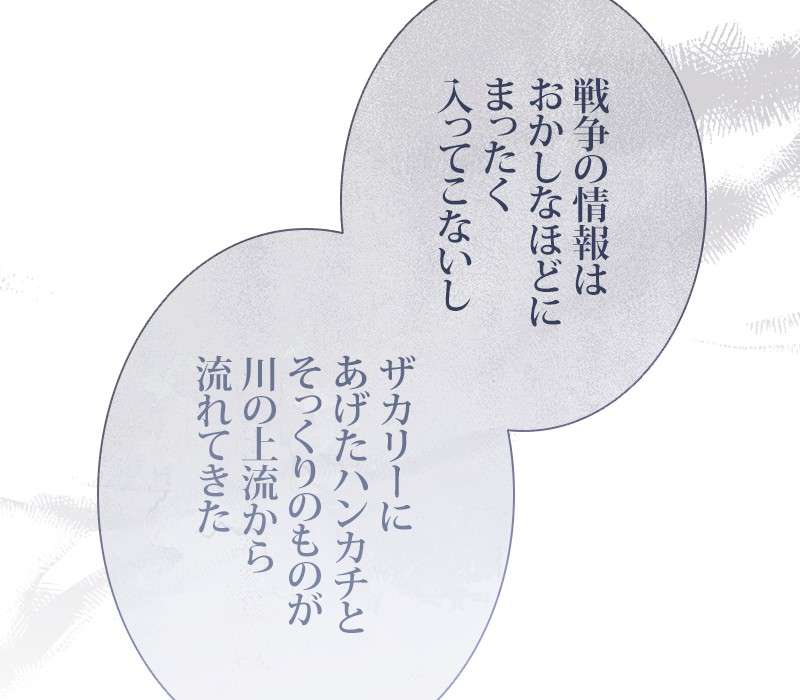 戦争の情報は
おかしなほどに
まったく
入ってこないし
ザカリーに
あげたハンカチと
そっくりのものが
川の上流から
流れてきた